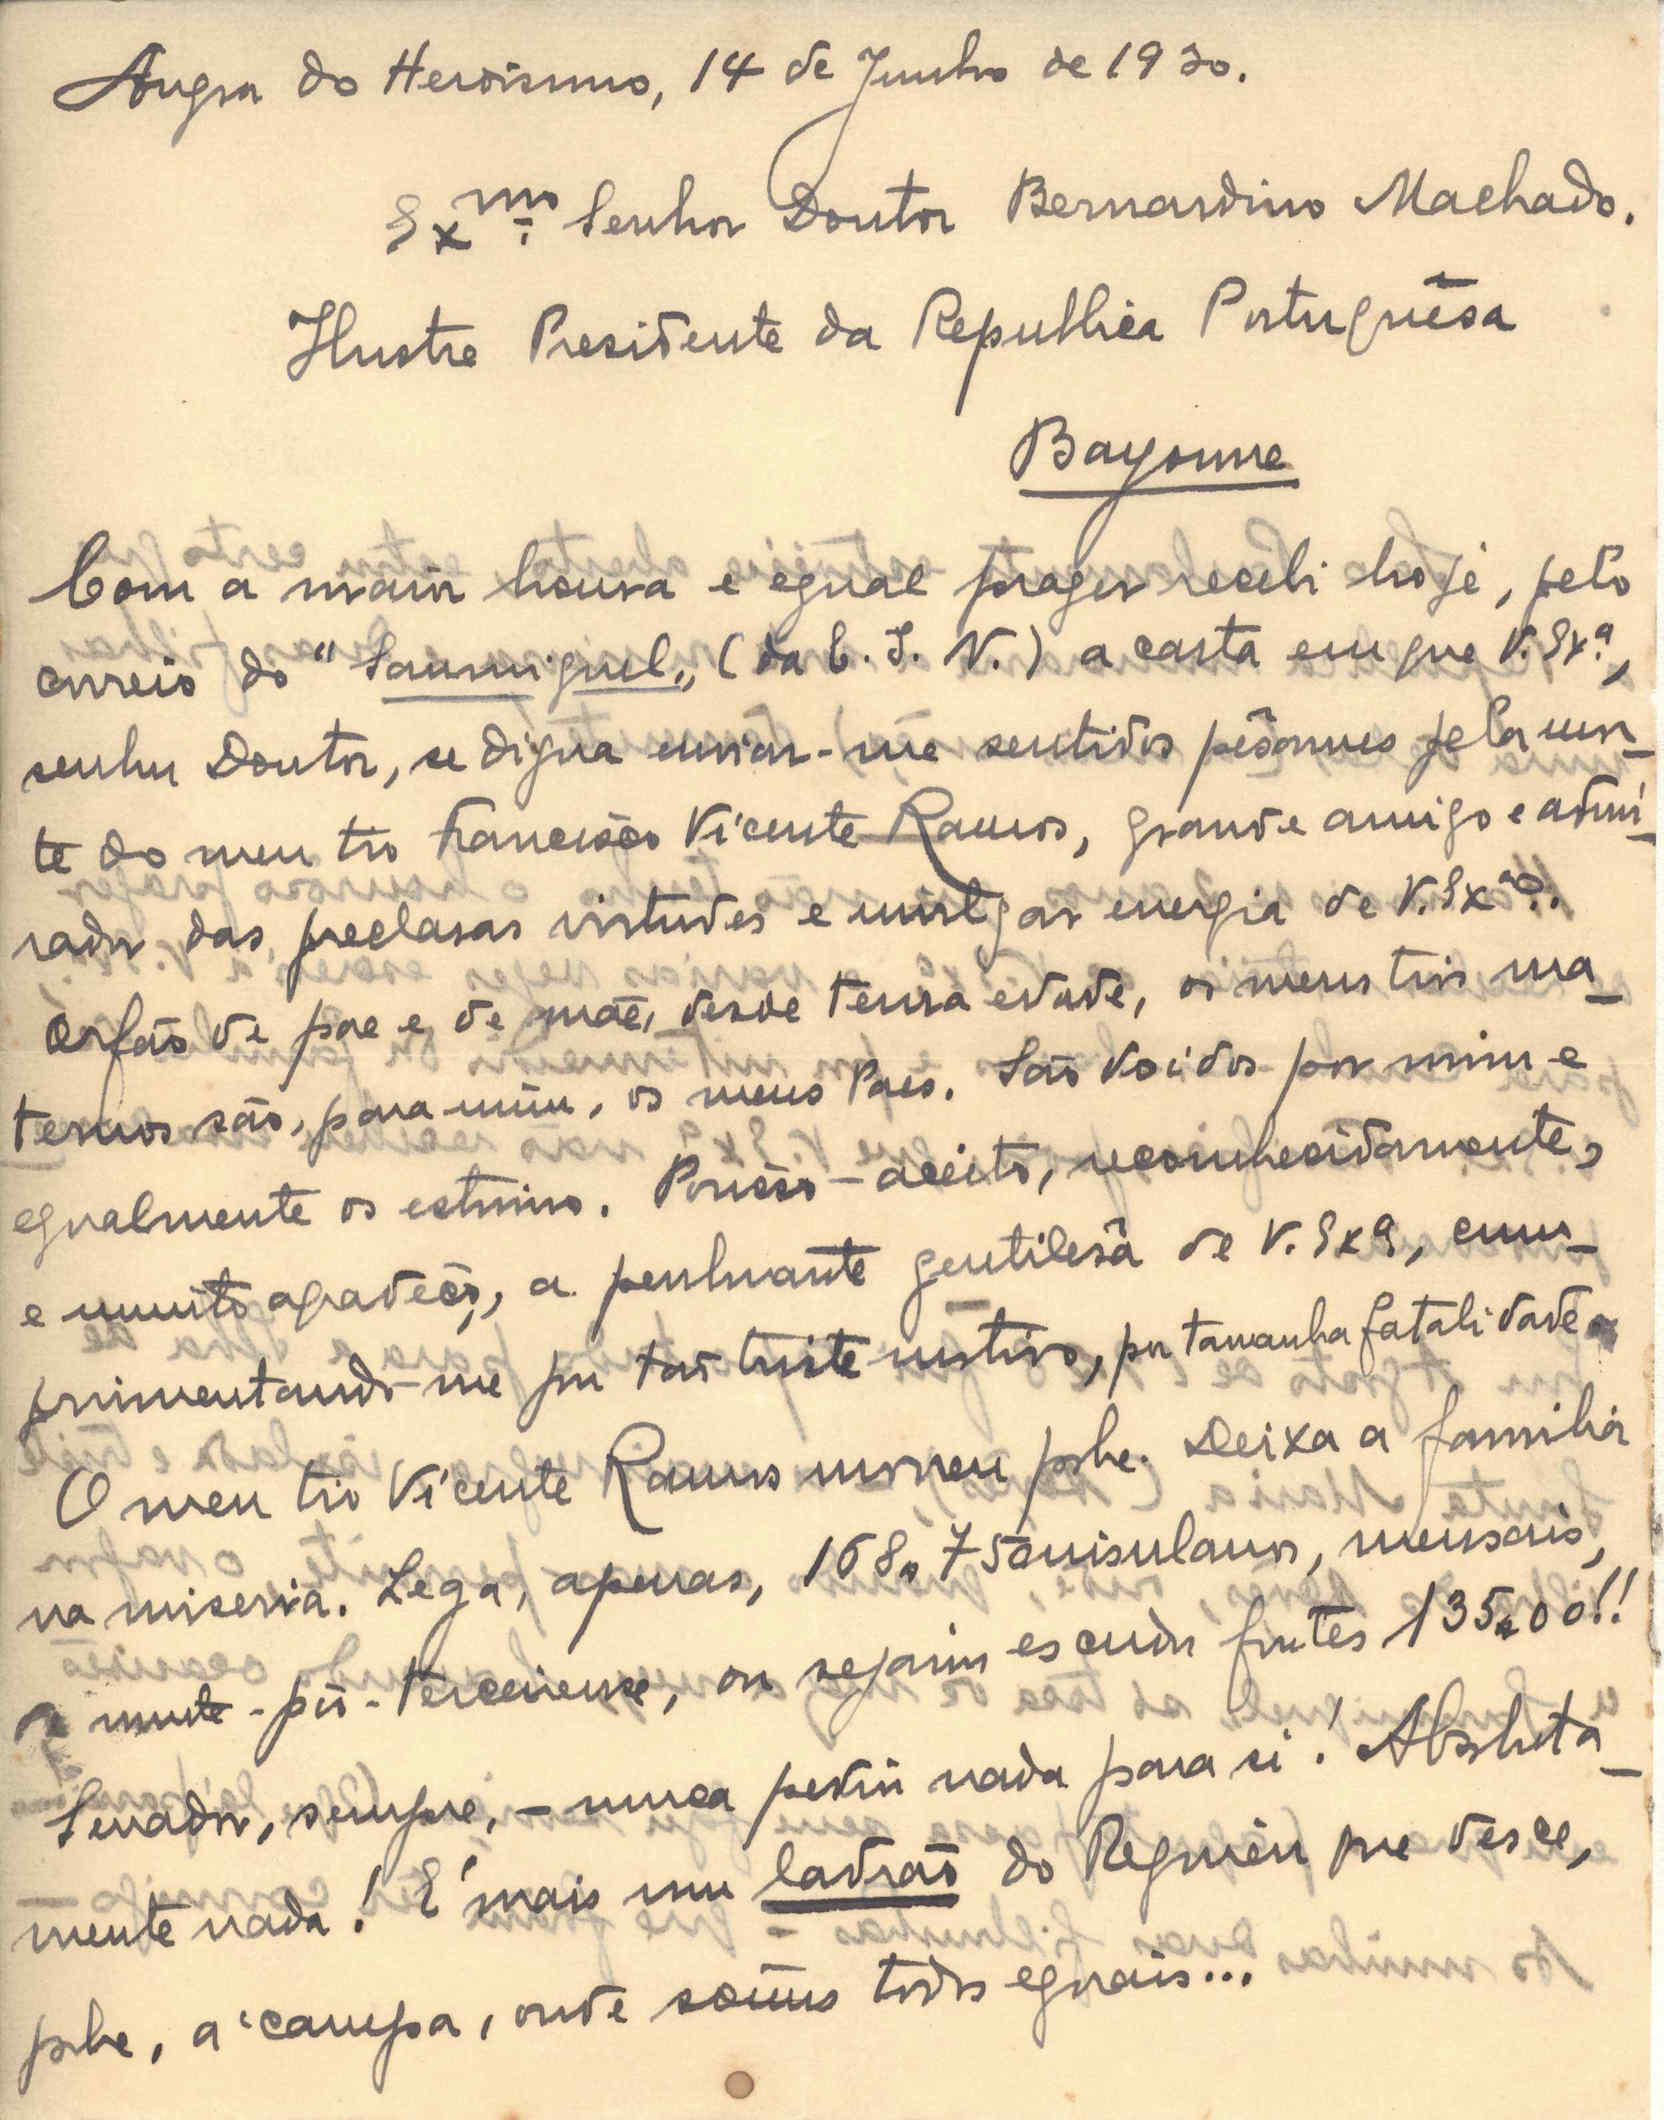 Angra do Heroismo, 14 de Junho de 1930.
Exmo Senhor Doutor Bernardino Machado.
Ilustre Presidente da Republica Portuguêsa
Bayonne
Com a maior honra e egual prazer recebi hoje, pelo
correio do "Sanmiguel" (da C. I. N.) a carta em que V. Exª,
senhor Doutor, se digna enviar-me sentidos pêsames pela mor-
te do meu tio Francisco Vicente Ramos, grande amigo e admi-
rador das preclaras virtudes e invulgar energia de V. Exª.
Orfão de pae e de mãe, desde tenra edade, os meus tios ma-
ternos são, para mim, os meus Paes. São doidos por mim e
egualmente os estimo. Porisso - aceito, reconhecidamente,
e muito agradeço, a penhorante gentilesa de V. Exª, cum-
primentando-me por tão triste motivo, por tamanha fatalidade.
O meu tio Vicente Ramos morreu pobre. Deixa a familia
na miseria. Lega, apenas, 168$75 insulanos, mensais,
mente-pio-terceirense, ou sejam escudos fortes 135$00!!
Senador, sempre, - nunca pediu nada para si! Absoluta-
mente nada! E' mais um ladrão do Regimen que desce,
pobre, a' campa, onde sômos todos eguais...